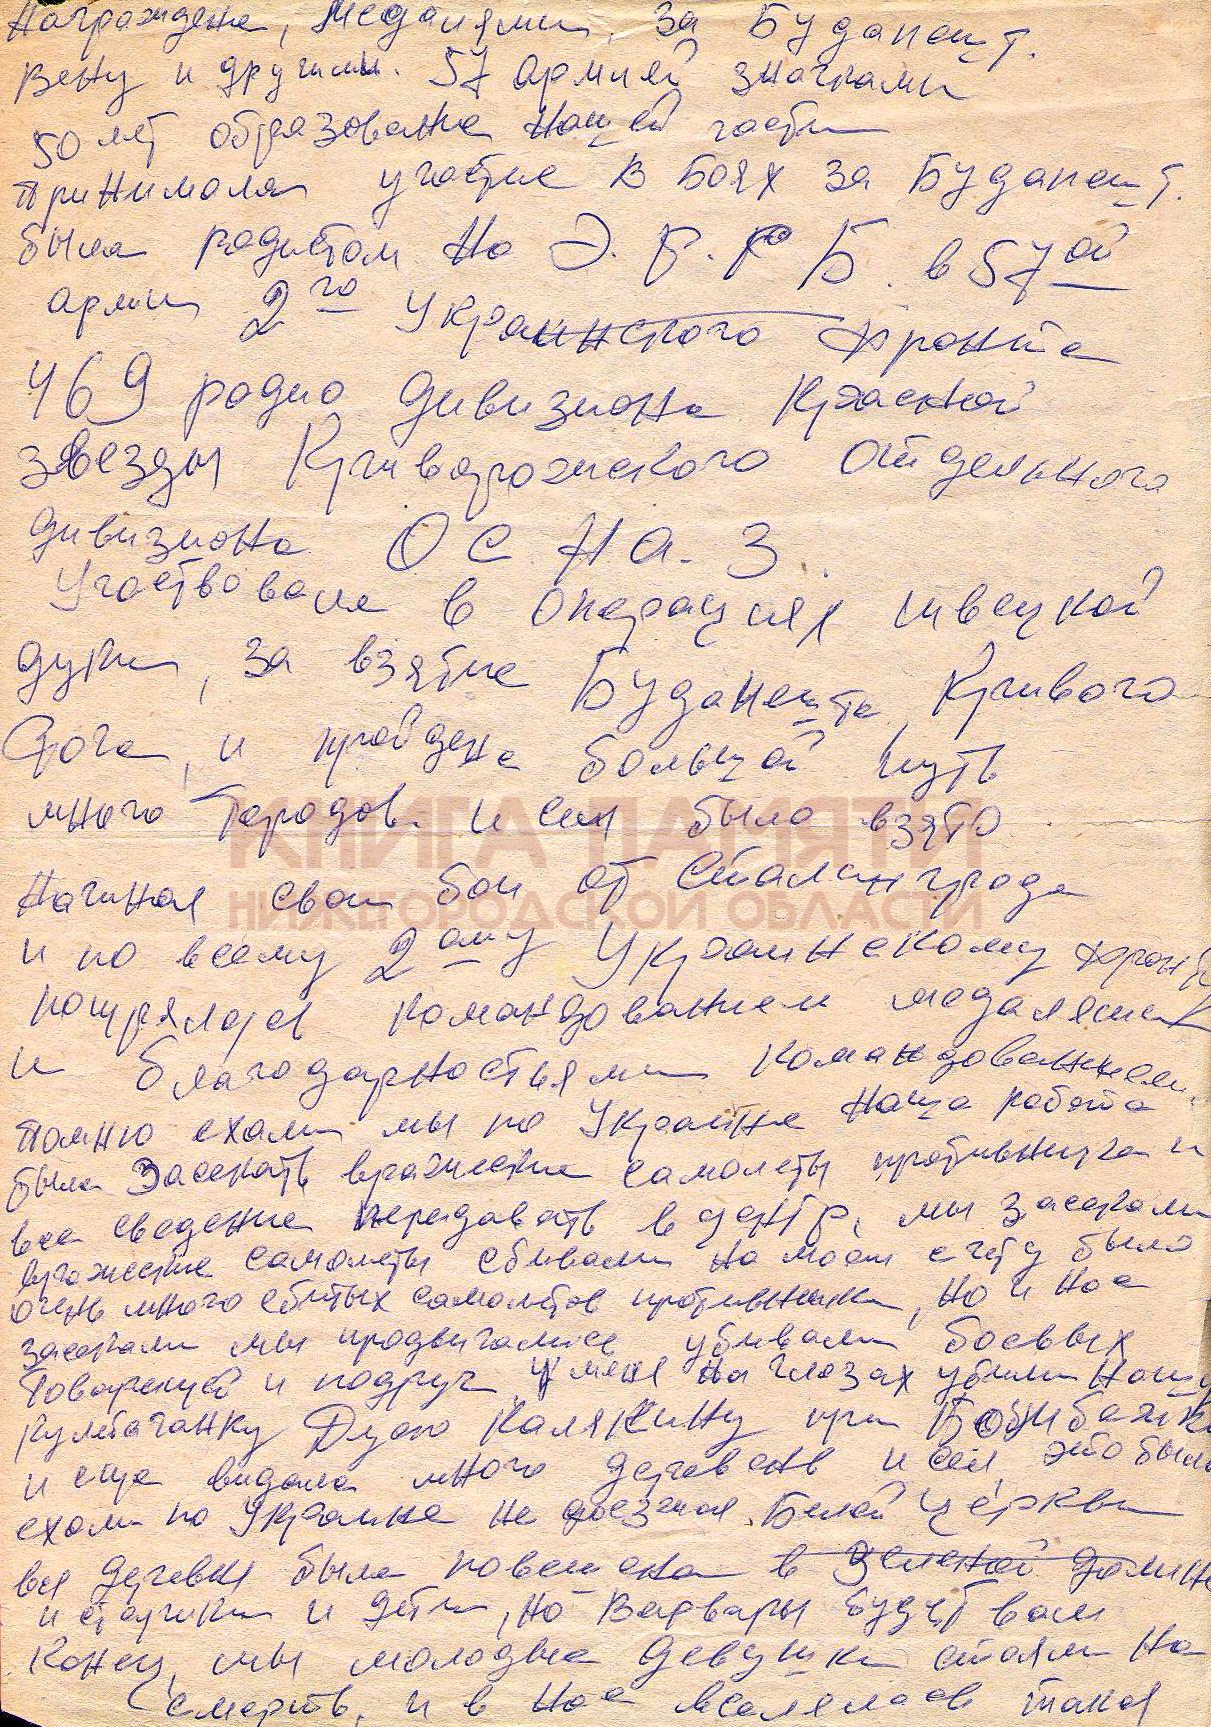 Награждена, Медалями, за Будапешт.
Вену и другими. 57 армией значками
50 лет образование нашей части
принимала участие в Боях за Будапешт.
была радистом на Э. Р. Р Б. в 57ой
армии 2го Украинского фронта
469 радио дивизиона Красной
звезды Криворожского Отдельного
дивизиона О С Н А. З.
Участвовала в операциях
дуги, за взятие Будапешта, Кривого
Рога, и пройдена большой путь
много Городов. и сел было взято
КНИГА ПАМЯТИ
НИЖЕГОРОДСКОЙ ОБЛАСТИ
Начиная свои бои от Сталинграда
и по всему 2ому Украинскому фронту
командованием медалями
и благодарностями командованием.
помню ехали мы по Украине Наша работа
была Засекать вражеские самолеты противника и
все сведение передавать в центр, мы засекали
вражеские самолеты сбивали на моем счету было
очень много сбитых самолетов противника, но и нас
засекали мы продвигались убивали боевых
Товарищей и подруг, У меня на глазах убили нашу
Кулебачанку Дусю Калякину при Бомбежке
и еще видала много деревень и сел, это было
ехали по Украине не доезжая Белой Церкви
вся деревня была повешена в Зеленой долине
и старики и дети, но Варвары будет вам
Конец, мы молодые девушки стояли на
смерть, и в нас вселялась такая